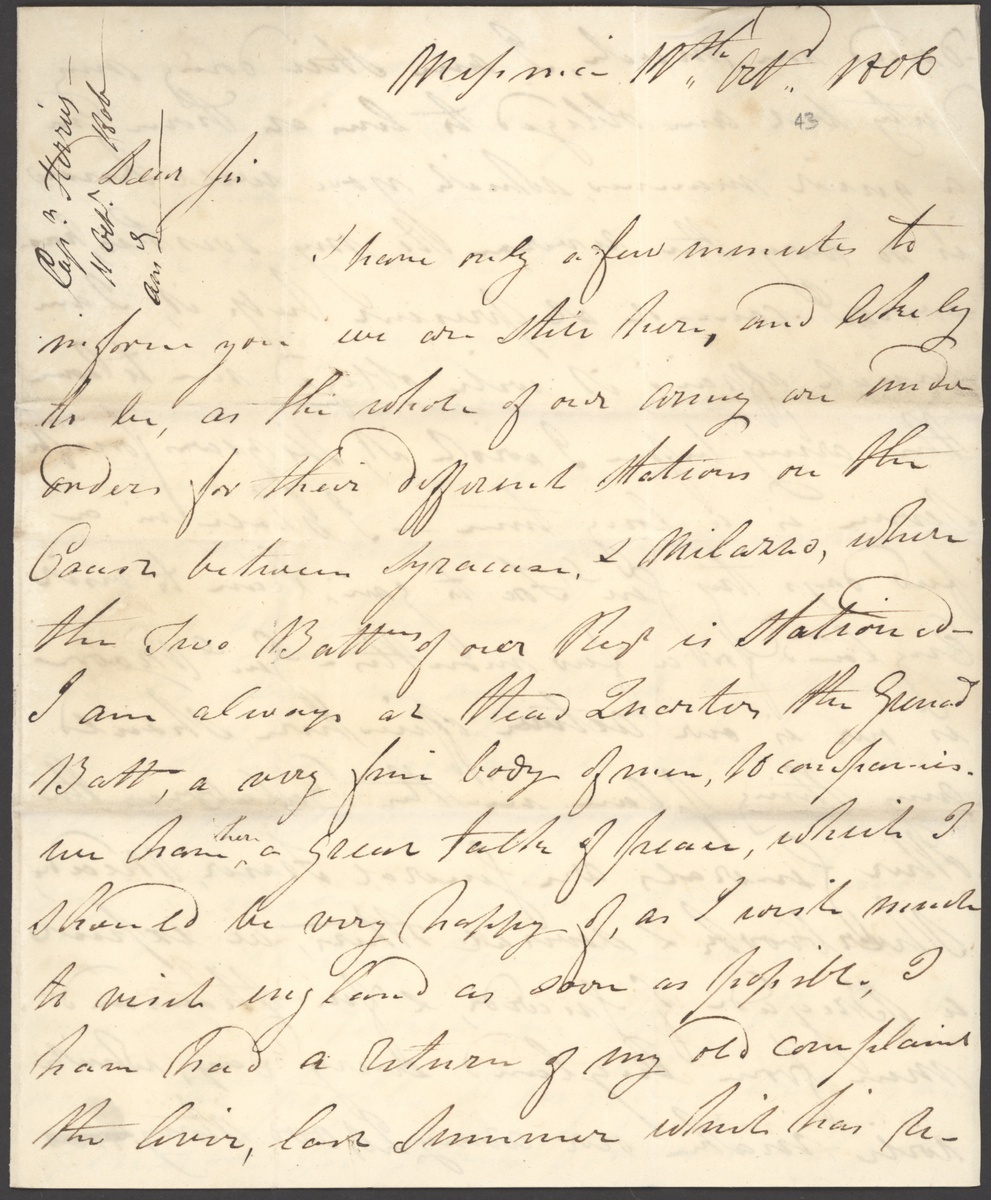 Messina 11th Octr. 1806
43
Capn. Horris
11 Octr. 1806
ansd
Dear Sir
I have only a few minutes to
inform you we are still here, and likely
to be, as the whole of our army are under
orders for their different stations on the
Coast between Syracuse, & Milazzo, where
the Two Batt.ns of our Regt is stationed
I am always at Head Quarters, the Grenad
Batt, a very fine body of men, 10 companies.
we have here a great talk of peace, which I
should be very happy of, as I wish much
to visit england as soon as possible, I
have had a return of my old complaint
the liver, last summer which has re-